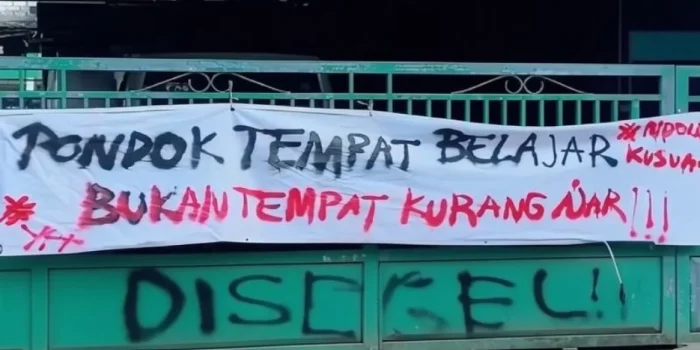 PONDOK TEMPAT BELAJAR
BUKAN TEMPAT KURANG AJAR!!!
DISEGEL!